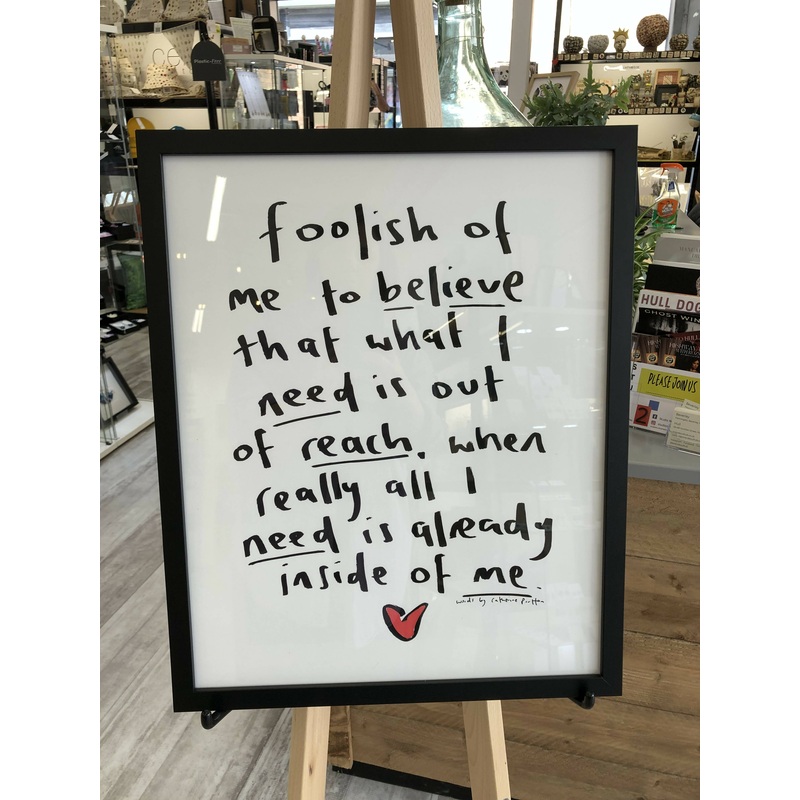 foolish of
me to believe
that what I
need is out
of reach. when
really all I
need is already
inside of me.
words by
HULL DOG
GHOST WIN
PLEASE JOIN US
2